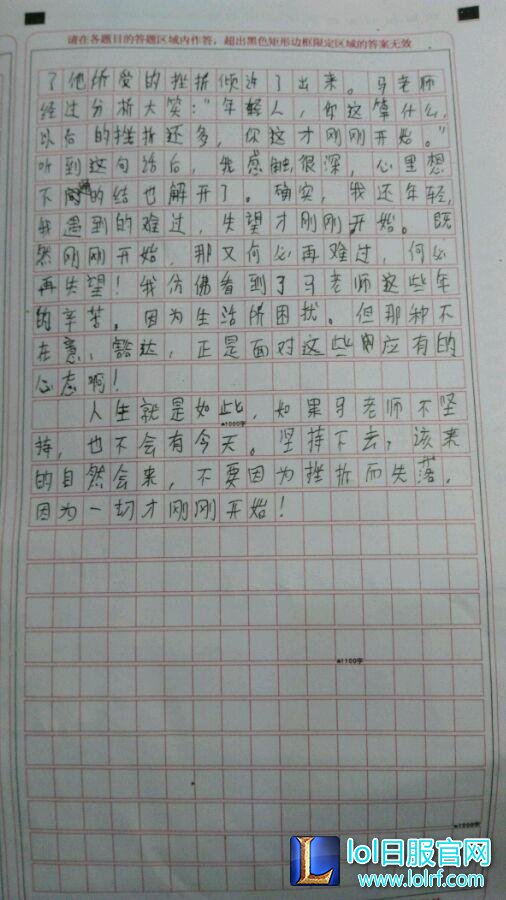 请在各题目的答题区域内作答，超出黑色矩形边框限定区域的答案无效
了他所受的挫折倾诉了出来。马老师
经过分析大笑："年轻人，你这算什么，
以后的挫折还多，你这才刚刚开始。"
听到这句话后，我感触很深，心里想
不通的结也解开了。确实，我还年轻，
我遇到的难过，失望才刚刚开始。既
然刚刚开始，那又何必再难过，何必
再失望！我仿佛看到了马老师这些年
的辛苦。因为生活所困扰。但那种不
在意，豁达，正是面对这些应有的
心态啊！
人生就是如此，如果马老师不坚
▲1000字
持，也不会有今天。坚持下去，该来
的自然会来，不要因为挫折而失落，
因为一切才刚刚开始！
▲1100字
▲1200字
lol日服官网
www.lolrf.com